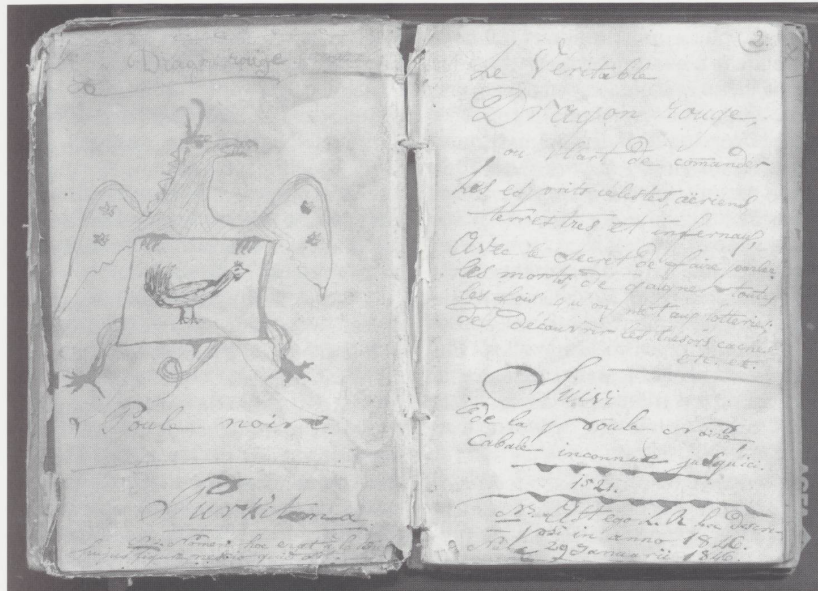 Dragon rouge
Poule noire.
Purkitma
2.
Le Veritable
Dragon rouge,
ou l'art de comander
Les esprits célestes, aëriens
terrestres et infernaux,
Avec le Secret de faire parler
les morts, de gaigner toutes
les fois qu'on met aux lotteries,
des découvrir les tresors cachés
etc. et.
Suivi
de la poule Noire,
Cabale inconnue jusqu'ici.
1521.
in anno 1846.
29 Januarii 1846.